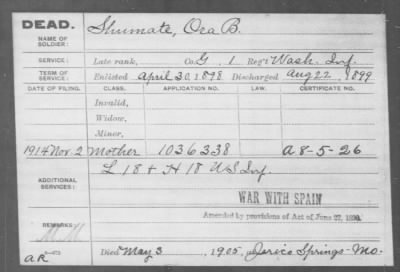 DEAD.
NAME OF SOLDIER: Shumate, Ora B.
SERVICE: Late rank, Co. G, 1 Reg't Wash. Inf.
TERM OF SERVICE: Enlisted April 30, 1898 Discharged Aug 22, 1899
DATE OF FILING. CLASS. APPLICATION NO. LAW. CERTIFICATE NO.
Invalid,
Widow,
Minor,
1914 Nov. 2 Mother 1036338 A 8-5-26
ADDITIONAL SERVICES: L 18 + H 18 U S Inf.
WAR WITH SPAIN
Amended by provisions of Act of June 27, 1890.
REMARKS:
Died May 3, 1905, Jerico Springs - Mo.